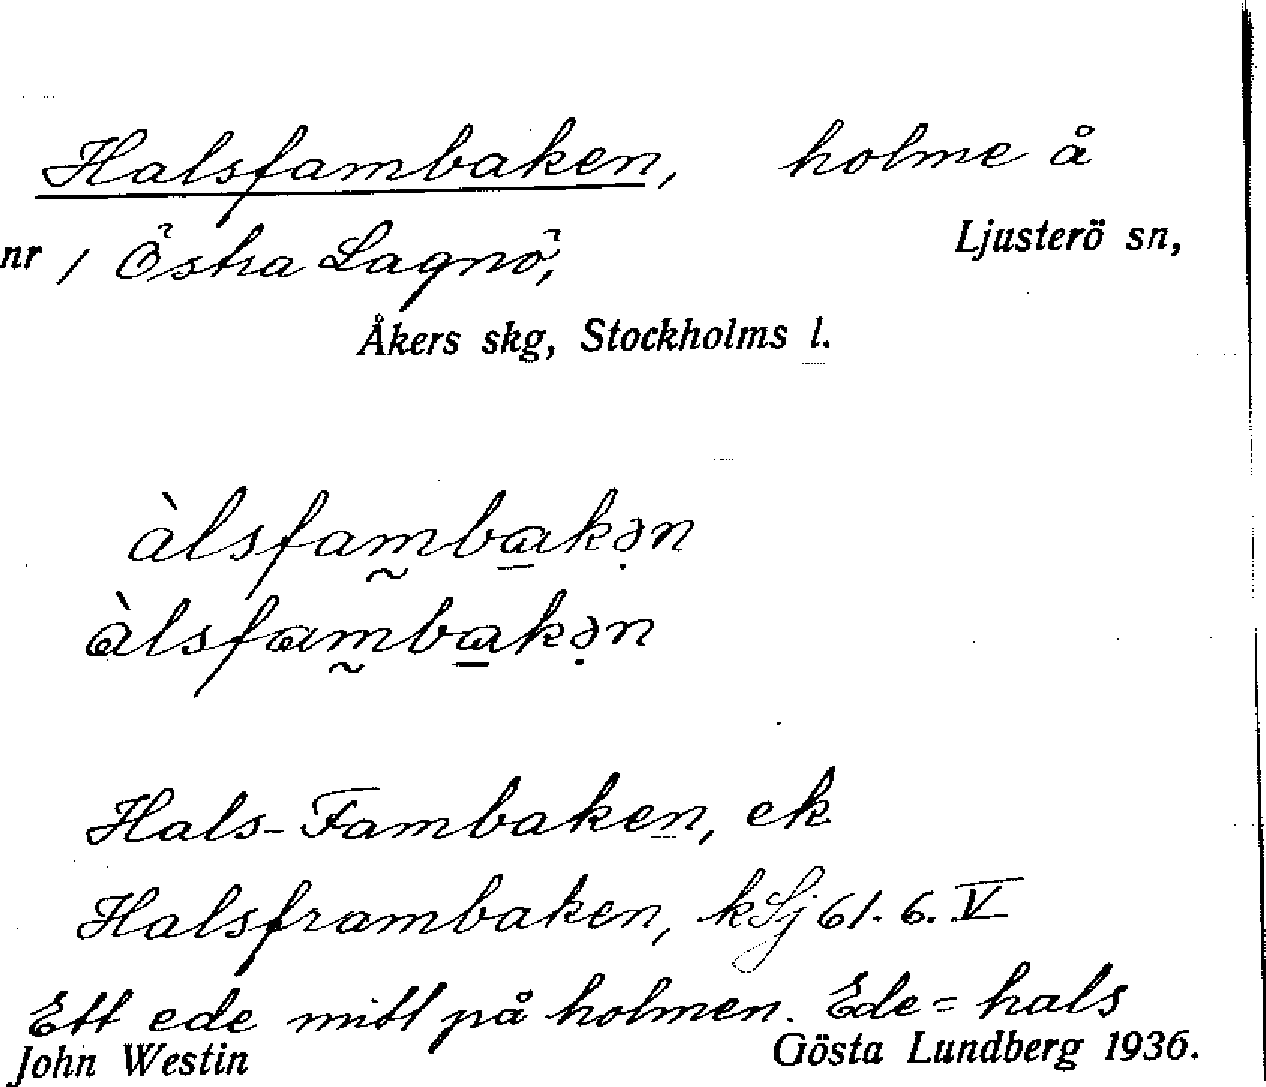 Halsfambaken, holme å
nr / Östra Lagnö, Ljusterö sn,
Åkers skg, Stockholms l.
àlsfam̰ba̱kə̣n
àlsfam̰ba̱kə̣n
Hals-Fambaken, ek
Halsframbaken, kSj 61.6.V
Ett ede mitt på holmen. Ede = hals
John Westin Gösta Lundberg 1936.